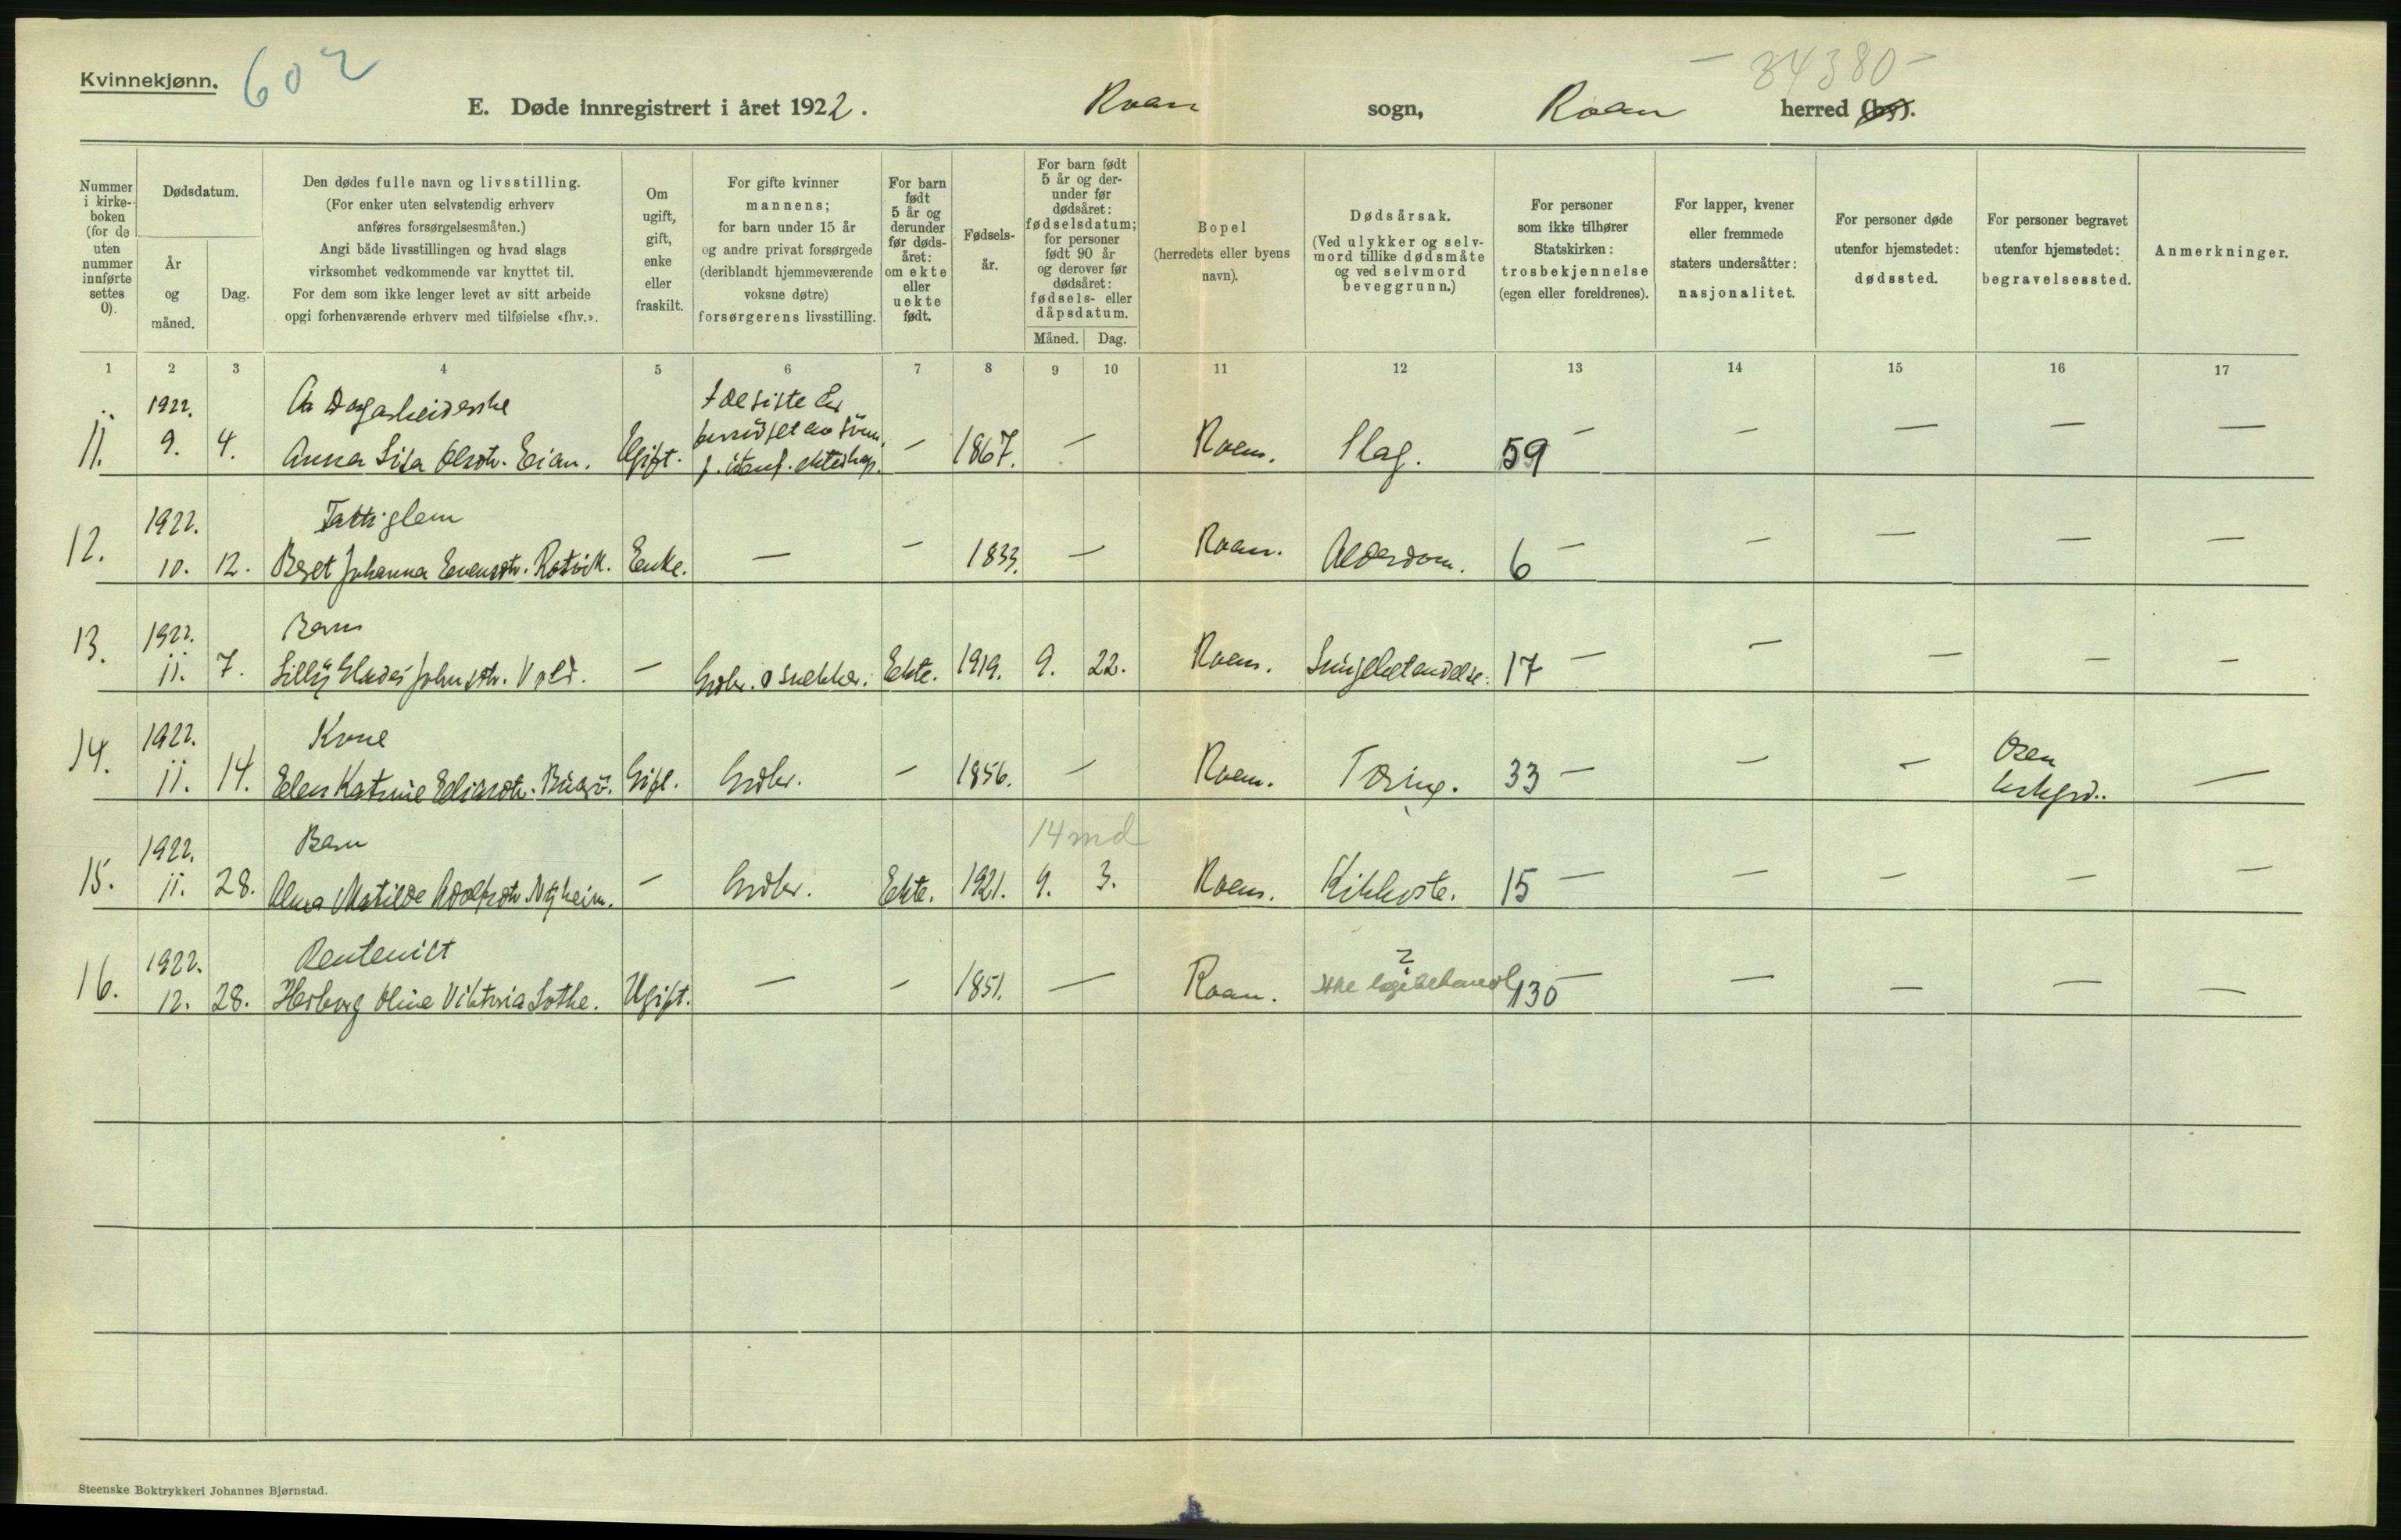 Kvinnekjønn.
602
- 34380 -
E. Døde innregistrert i året 1922. Roan sogn, Roan herred (by).
Nummer i kirke-boken (for de uten nummer innførte settes 0).
Dødsdatum.
År og måned.
Dag.
Den dødes fulle navn og livsstilling.
(For enker uten selvstendig erhverv
anføres forsørgelsesmåten.)
Angi både livsstillingen og hvad slags
virksomhet vedkommende var knyttet til.
For dem som ikke lenger levet av sitt arbeide
opgi forhenværende erhverv med tilføielse «fhv.».
Om ugift, gift, enke eller fraskilt.
For gifte kvinner
mannens;
for barn under 15 år
og andre privat forsørgede
(deriblandt hjemmeværende
voksne døtre)
forsørgerens livsstilling.
For barn født 5 år og derunder før døds-året: om ekte eller uekte født.
Fødsels-år.
For barn født 5 år og der-under før dødsåret: fødselsdatum; for personer født 90 år og derover før dødsåret: fødsels- eller dåpsdatum.
Måned. Dag.
Bopel
(herredets eller byens
navn).
Dødsårsak.
(Ved ulykker og selv-
mord tillike dødsmåte
og ved selvmord
beveggrunn.)
For personer
som ikke tilhører
Statskirken:
trosbekjennelse
(egen eller foreldrenes).
For lapper, kvener
eller fremmede
staters undersåtter:
nasjonalitet.
For personer døde
utenfor hjemstedet:
dødssted.
For personer begravet
utenfor hjemstedet:
begravelsessted.
Anmerkninger.
1 2 3 4 5 6 7 8 9 10 11 12 13 14 15 16 17
1922. Dagarbeiderske I de siste år
11. 9. 4. Anna Lisa Olsdtr. Eian. Ugift. forsørget av sønn, f. utenf. ekteskap. — 1867. — Roan. Slag. 59 — — — — —
1922. Fattiglem
12. 10. 12. Beret Johanna Evensdtr. Ratvik. Enke. — — 1833. — Roan. Alderdom. 6 — — — — —
1922. Barn
13. 11. 7. Lilly Johnsdtr. Vold. — Grdbr. o snekker. Ekte. 1919. 9. 22. Roan. Lungebetendelse. 17 — — — — —
1922. Kone
14. 11. 14. Elen Katrine Eliasdtr. Gift. Grdbr. — 1856. — Roan. Tæring. 33 — — — Osen kirkegrd. —
1922. Barn 14 md
15. 11. 28. Alma Matilde Adolfsdtr. Nyheim. — Grdbr. Ekte. 1921. 9. 3. Roan. Kikhoste. 15 — — — — —
1922. Rentenist ?
16. 12. 28. Herborg Oline Viktoria Lothe. Ugift. — — 1851. — Roan. Ikke lægebehandl 130 — — — — —
Steenske Boktrykkeri Johannes Bjørnstad.